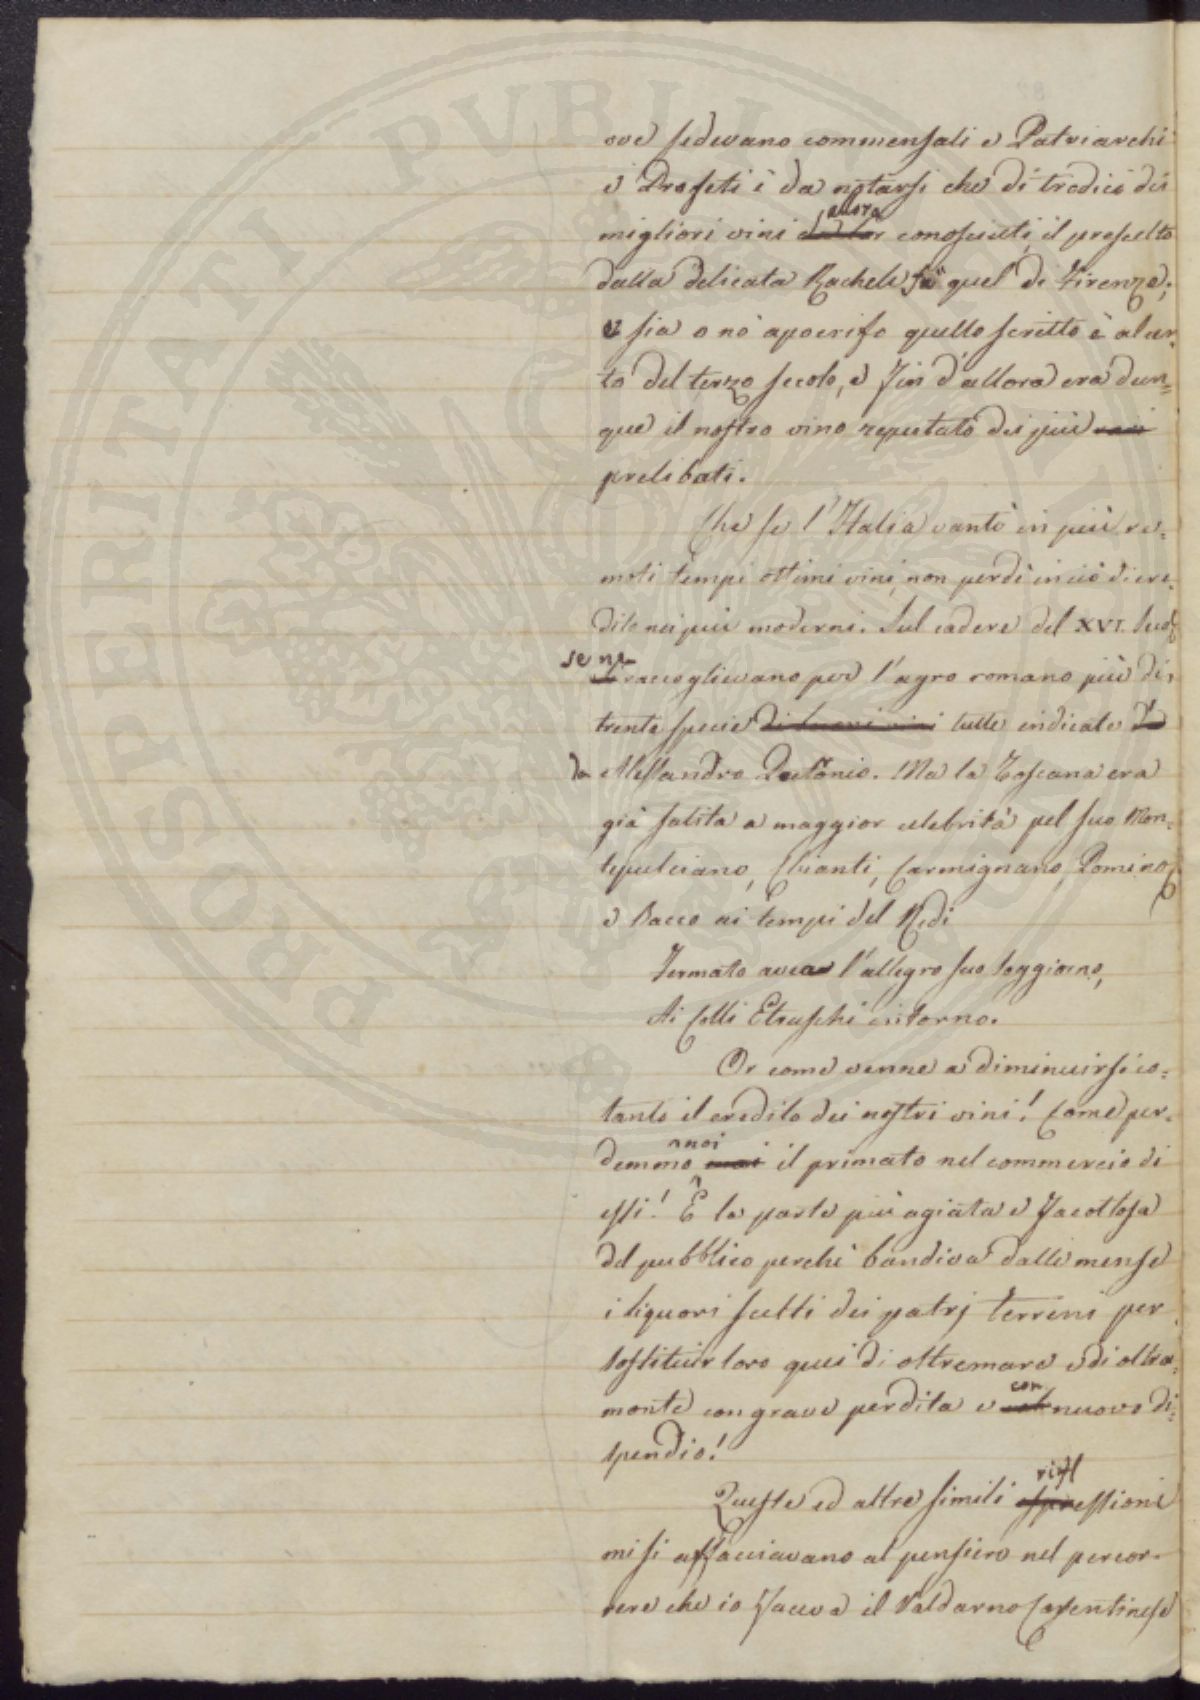 ove sedevano commensali e Patriarchi
e Profeti è da notarsi che di tredici dei
migliori vini allora conosciuti, il prescelto
dalla delicata Rachele fù quel di Firenze;
e sia o nò apocrifo quello scritto è al cer-
to del terzo secolo, e fin d'allora era dun-
que il nostro vino reputato dei più rari
prelibati.
Che se l'Italia vantò in più re-
moti tempi ottimi vini, non perdè in ciò di cre-
dito nei più moderni. Sul cadere del XVI. Secol
se ne raccoglievano per l'agro romano più di
trenta specie tutte indicate
da Alessandro Petronio. Ma la Toscana era
già salita a maggior celebrità pel suo Mon-
tepulciano, Chianti, Carmignano, Pomino,
e Bacco ai tempi del Redi
Fermato avea l'allegro suo soggiorno,
Ai Colli Etruschi intorno.
Or come venne a diminuirsi co-
tanto il credito dei nostri vini! Come per-
demmo noi il primato nel commercio di
essi! E la parte più agiata e facoltosa
del pubblico perchè bandiva dalle mense
i liquori scelti dei patrj terreni per
sostituir loro quei di oltremare e di oltra-
monte con grave perdita e con nuovo di-
spendio!
Queste ed altre simili riflessioni
mi si affacciavano al pensiero nel percor-
rere che io faceva il Valdarno Casentinese
PROSPERITATI PUBLICAE